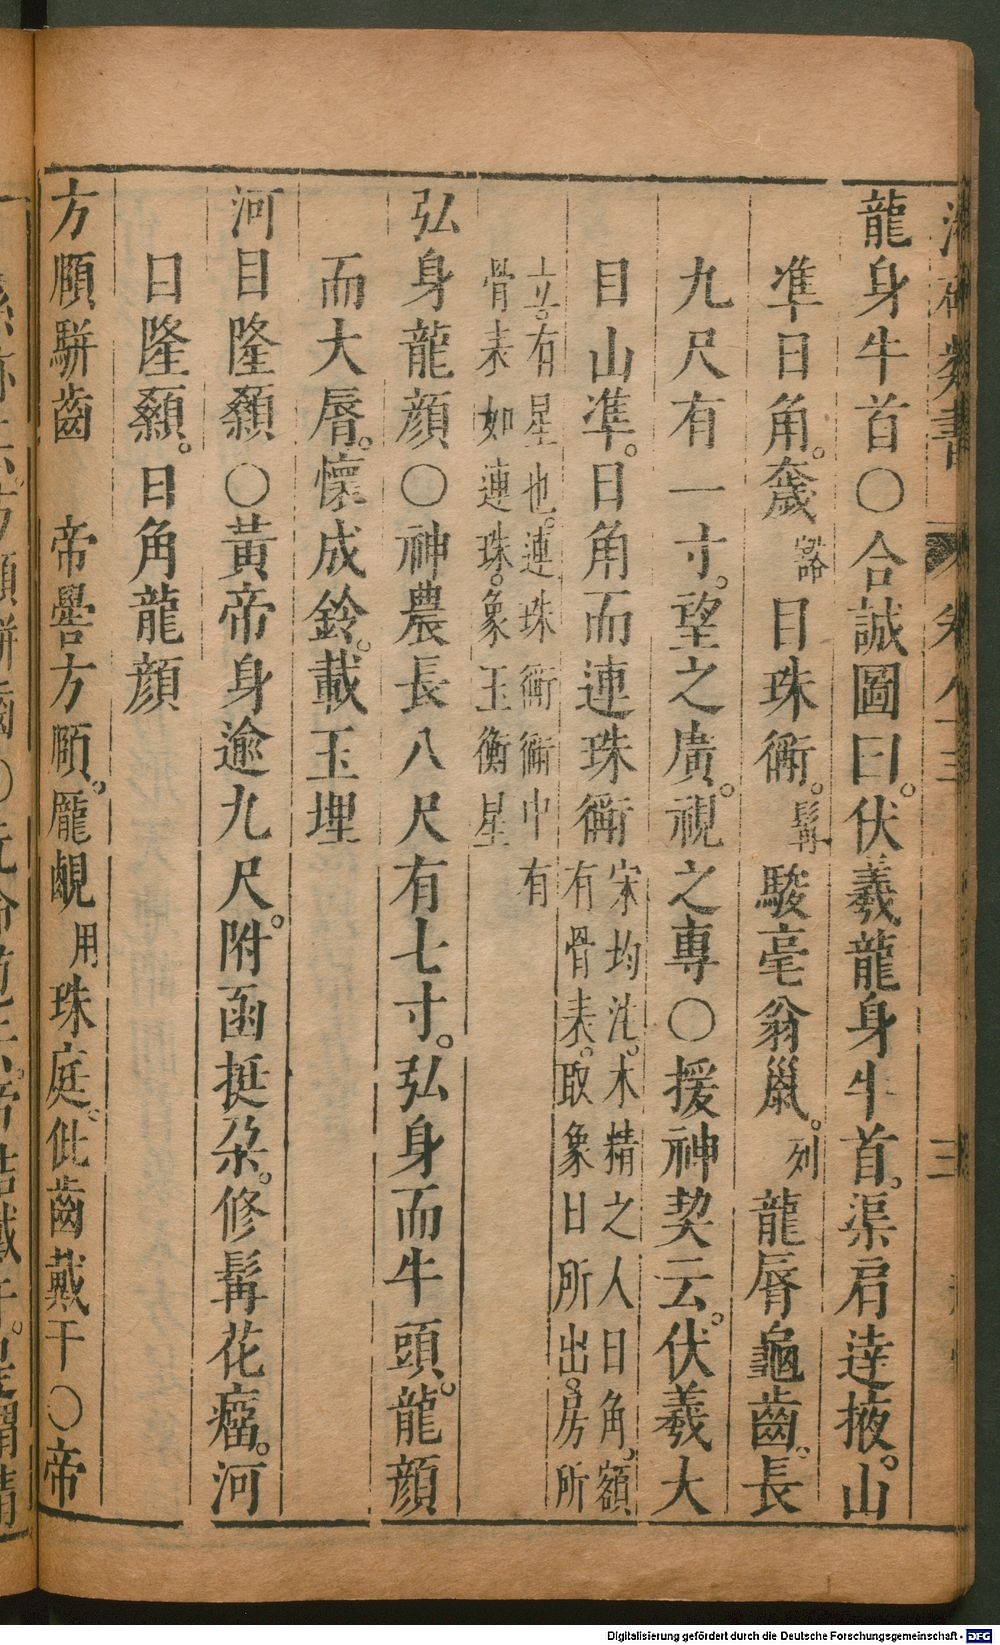 龍身牛首〇合誠圖曰。伏羲龍身牛首。渠肩達掖。山
準日角。奯目珠衡。駿毫翁鬛。列龍脣龜齒。長
九尺有一寸。望之廣。視之專〇援神契云。伏羲大
目山準。日角而連珠衡
宋均注。木精之人日角。額
有骨表。取象日所出。房所
立。有星也。連珠衡衡中有
骨表如連珠。象玉衡星
弘身龍顏〇神農長八尺有七寸。弘身而牛頭。龍顏
而大脣。懷成鈴。載玉埋
河目隆顙〇黃帝身逾九尺。附函挺朶。修髯花瘤。河
目隆顙。日角龍顏
方頤駢齒 帝嚳方頤。龎覞用珠庭。仳齒戴干〇帝
Digitalisierung gefördert durch die Deutsche Forschungsgemeinschaft - DFG